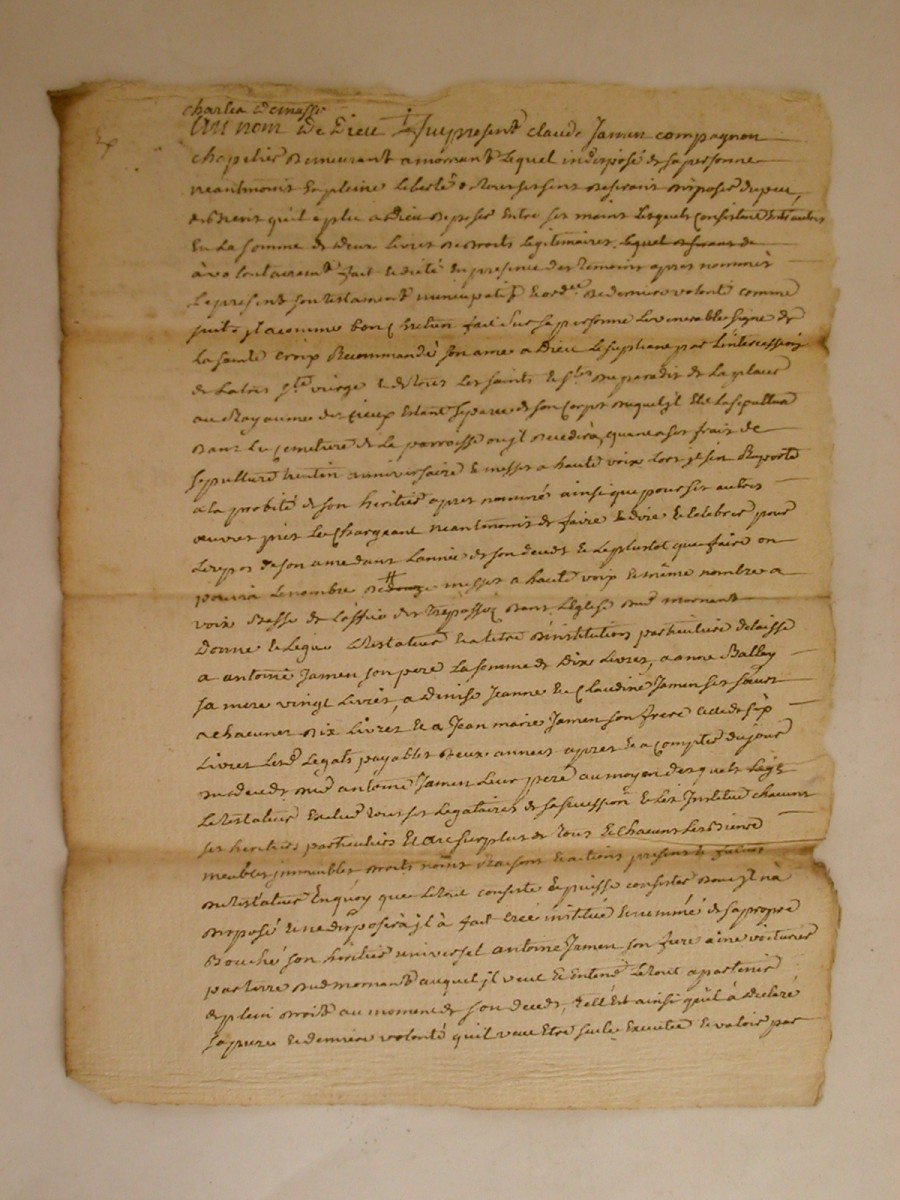 charles
Au nom de Dieu fut present claude Jamen compagnon
chapelier demeurant a mornant Lequel indisposé de sa personne
neantmoins en pleine liberté de tous ses sens desirant disposer du peu
de biens qu'il a plu a Dieu deposer Entre ses mains Lesquels Consistent
En La somme de deux Livres de droits Legitimaires, Lequel de
a volontairemt fait et dicté En presence des temoins apres nommés
Le present son testament nuncupatif et ordce de derniere volonté comme
suit, jl a comme bon Chretien fait sur sa personne Le venerable signe de
La sainte Croix Recommandé son ame a Dieu Le supliant par L'intercession
de La tres ste vierge et de tous Les saints et stes du paradis de La placer
au Royaume des Cieux Estant separée de son Corps duquel jl Elit La sepulture
dans Le Cemetiere de La parroisse ou jl decedera, quant a ses frais de
sepulture anniversaire et messes a haute voix jl s'en Raporte
a la probité de son heritier apres nommé ainsi que pour ses autres
œuvres pies Le Chargeant neantmoins de faire dire et celebrer pour
Le repos de son ame dans L'année de son deceds et Le plustot que faire on
pourra Le nombre de messes a haute voix et même nombre a
voix basse de L'office des trepassez dans L'eglise dud mornant
Donne et Legue Le testateur et a titre d'institution particuliere delaisse
a antoine Jamen son pere La somme de dix Livres, a anne Balley
sa mere vingt Livres, a Denise Jeanne et Claudine Jamen ses sœurs
a chacune dix Livres et a Jean marie Jamen son frere
Livres Lesd Legats payables deux années apres et a Compter du jour
du deceds dud antoine Jamen Leur pere au moyen desquels Legs
Le testateur Exclud tous ses Legataires de sa succession et Les Jnstitue chacuns
ses heritiers particuliers Et au surplus de tous et Chacuns Les Biens
meubles jmmeubles droits noms Raisons et actions presents et futurs
du testateur En quoy que Le tout consiste et puisse consister dont jl n'a
disposé et ne disposera jl a fait Créé institué et nommé de sa propre
Bouche son heritier universel antoine Jamen son frere ainé voiturier
par terre dud mornant auquel jl veut et Entend Le tout apartenir
de plein droit au moment de son deceds, tell Est ainsi qu'il a declaré
sa pure et derniere volonté qu'il veut Etre seule Executée et valoir par